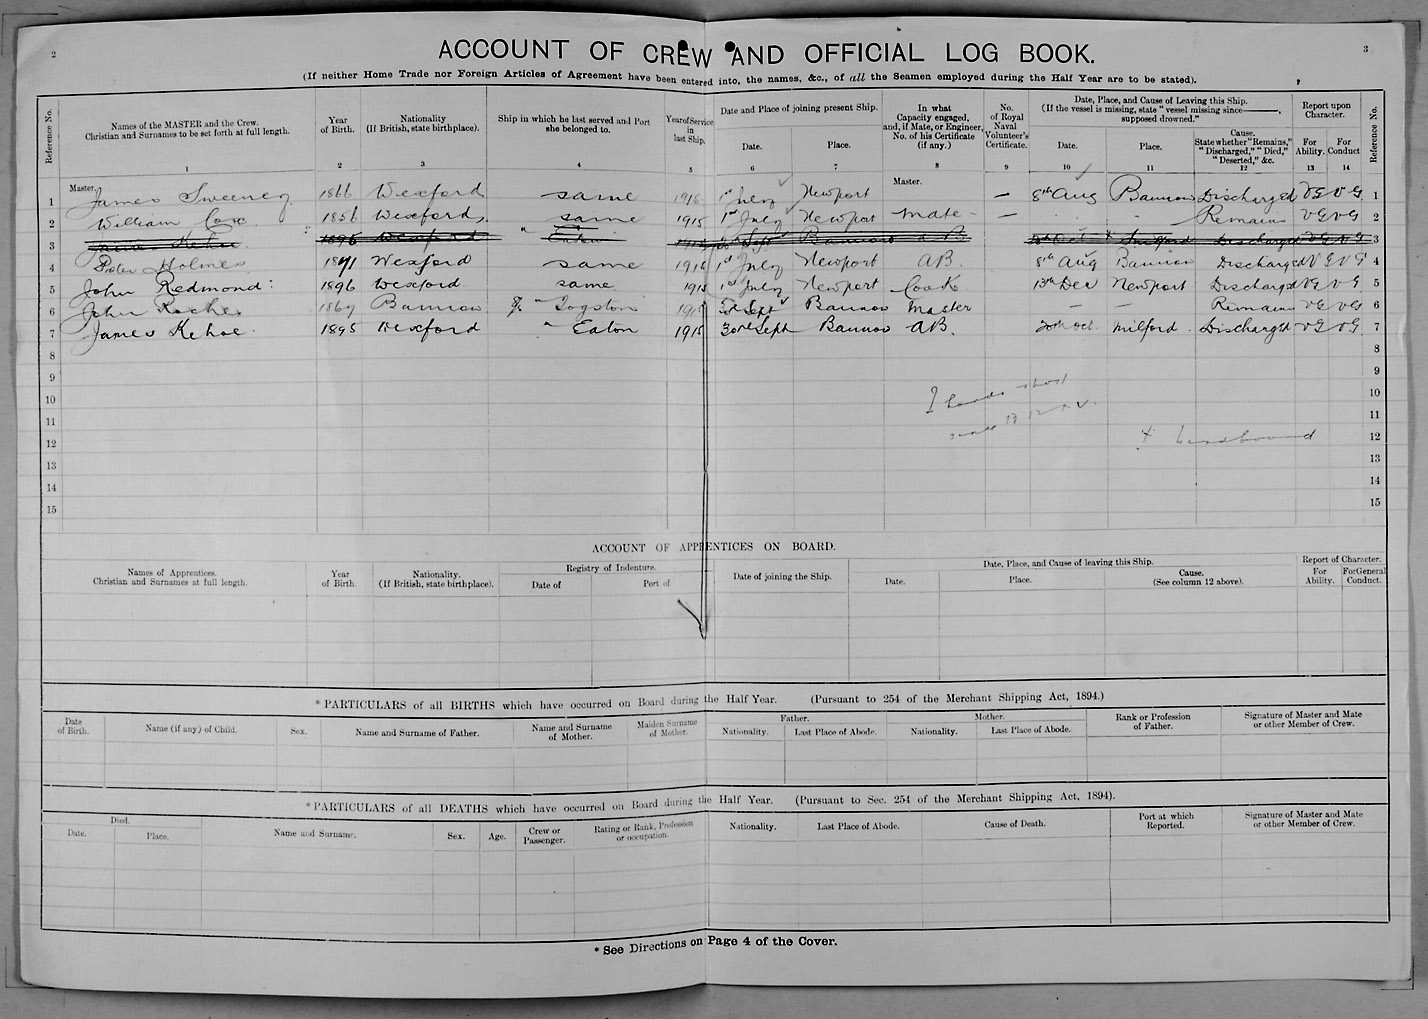 2
3
ACCOUNT OF CREW AND OFFICIAL LOG BOOK.
(If neither Home Trade nor Foreign Articles of Agreement have been entered into, the names, &c., of all the Seamen employed during the Half Year are to be stated).
Reference No. Names of the MASTER and the Crew. Christian and Surnames to be set forth at full length. Year of Birth. Nationality (If British, state birthplace). Ship in which he last served and Port she belonged to. Year of Service in last Ship. Date and Place of joining present Ship. In what Capacity engaged, and, if Mate, or Engineer, No. of his Certificate (if any.) No. of Royal Naval Volunteer's Certificate. Date, Place, and Cause of Leaving this Ship. (If the vessel is missing, state "vessel missing since———, supposed drowned." Report upon Character. Reference No.
Date. Place. Date. Place. Cause. State whether "Remains," "Discharged," "Died," "Deserted," &c. For Ability. For Conduct
1 2 3 4 5 6 7 8 9 10 11 12 13 14
Master. Master.
1 James Sweeney 1866 Wexford same 1915 1st July Newport — 8th Aug Bannow Discharged VG VG 1
2 William Cox 1856 Wexford same 1915 1st July Newport Mate — Remains VG VG 2
3 James Kehoe 1895 Wexford " Eaton Sept Bannow AB Oct Milford Discharged VG VG 3
4 Peter Holmes 1871 Wexford same 1915 1st July Newport AB. 8th Aug Bannow Discharged VG VG 4
5 John Redmond 1896 Wexford same 1915 1st July Newport Cook 13th Dec Newport Discharged VG VG 5
6 John Roche 1869 Bannow 1915 Sept Bannow Master — — Remains VG VG 6
7 James Kehoe 1895 Wexford " Eaton 1915 Sept Bannow AB. Oct. Milford Discharged VG VG 7
8 8
9 9
10 10
11 11
12 12
13 13
14 14
15 15
ACCOUNT OF APPRENTICES ON BOARD.
Names of Apprentices. Christian and Surnames at full length. Year of Birth. Nationality. (If British, state birthplace). Registry of Indenture. Date of joining the Ship. Date, Place, and Cause of leaving this Ship. Report of Character.
Date of Port of Date. Place. Cause. (See column 12 above). For Ability. For General Conduct.
* PARTICULARS of all BIRTHS which have occurred on Board during the Half Year. (Pursuant to 254 of the Merchant Shipping Act, 1894.)
Date of Birth. Name (if any) of Child. Sex. Name and Surname of Father. Name and Surname of Mother. Maiden Surname of Mother. Father. Mother. Rank or Profession of Father. Signature of Master and Mate or other Member of Crew.
Nationality. Last Place of Abode. Nationality. Last Place of Abode.
* PARTICULARS of all DEATHS which have occurred on Board during the Half Year. (Pursuant to Sec. 254 of the Merchant Shipping Act, 1894).
Died. Name and Surname. Sex. Age. Crew or Passenger. Rating or Rank, Profession or occupation. Nationality. Last Place of Abode. Cause of Death. Port at which Reported. Signature of Master and Mate or other Member of Crew.
Date. Place.
* See Directions on Page 4 of the Cover.